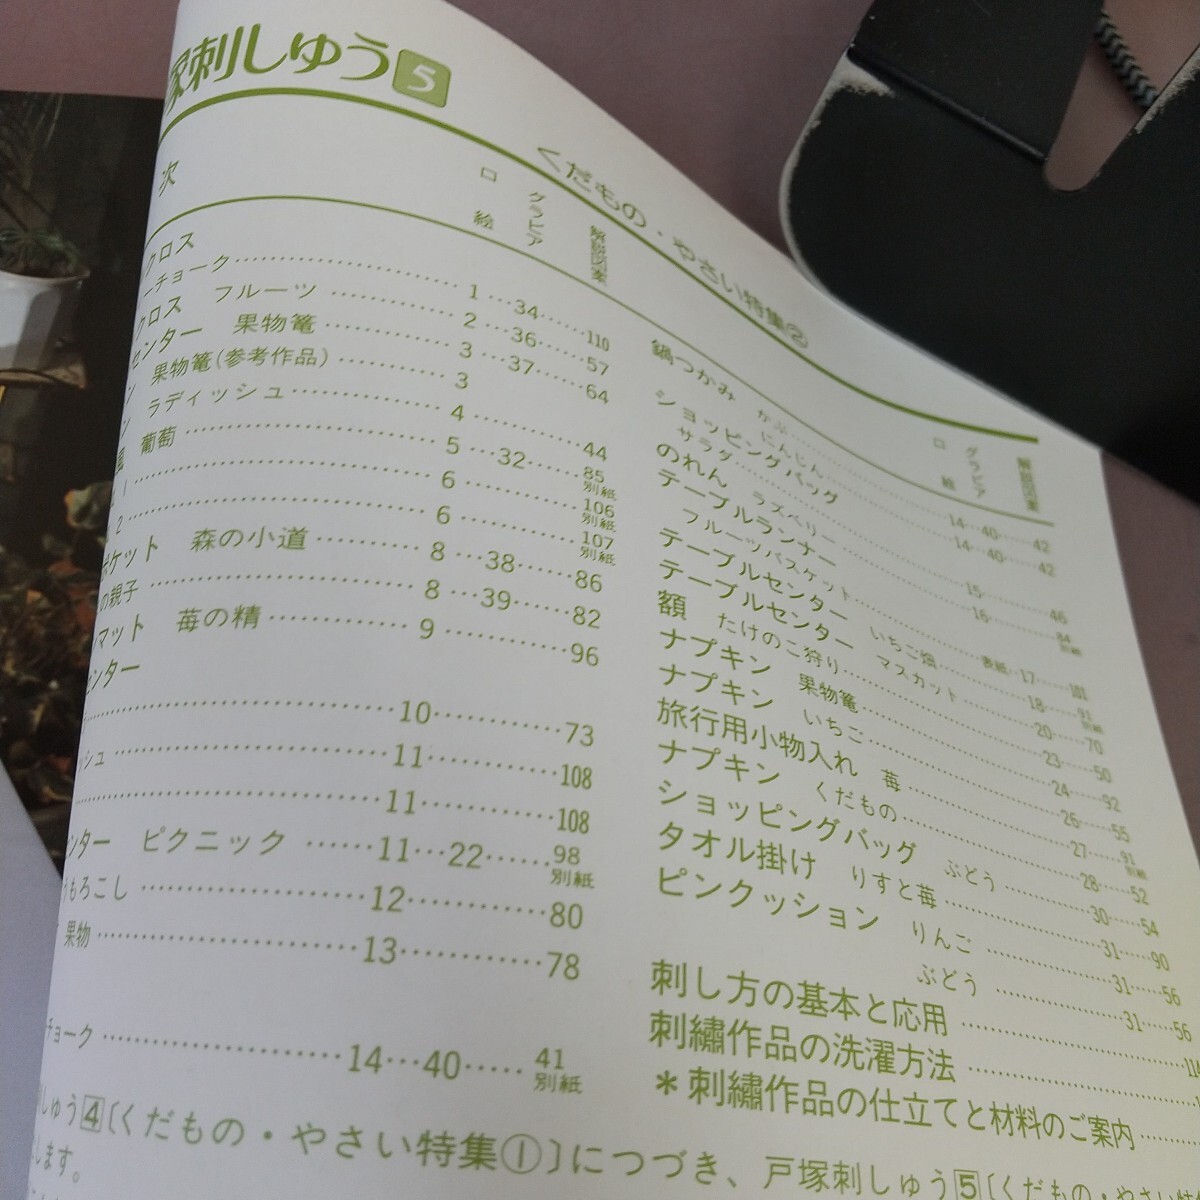 塚刺しゅう5
くだもの・やさい特集②
次
口絵 グラビア 解説図案
クロス
ーチョーク……1…34……110
クロス フルーツ……2…36……57
センター 果物篭……3…37……64
果物篭(参考作品)……3
ラディッシュ……4……44
葡萄……5…32……85 別紙
1……6……106 別紙
2……6……107 別紙
ポケット 森の小道……8…38……86
の親子……8…39……82
マット 苺の精……9……96
センター
……10……73
ッシュ……11……108
……11……108
ンター ピクニック……11…22……98 別紙
うもろこし……12……80
果物……13……78
チョーク……14…40……41 別紙
口絵 グラビア 解説図案
鍋つかみ かぶ……14…40……42
にんじん……14…40……42
ショッピングバッグ
サラダ……15……46
のれん ラズベリー……16……84 別紙
テーブルランナー
フルーツバスケット……表紙…17……101
テーブルセンター いちご畑……18……91 別紙
テーブルセンター マスカット……20……70
額 たけのこ狩り……23……50
ナプキン 果物篭……24……92
ナプキン いちご……26……55
旅行用小物入れ 苺……27……91 別紙
ナプキン くだもの……28……52
ショッピングバッグ ぶどう……30……54
タオル掛け りすと苺……31……90
ピンクッション りんご……31……56
ぶどう……31……56
刺し方の基本と応用……114
刺繡作品の洗濯方法……
＊刺繡作品の仕立てと材料のご案内……
しゅう4〔くだもの・やさい特集①〕につづき、戸塚刺しゅう5〔くだもの・やさい特
します。